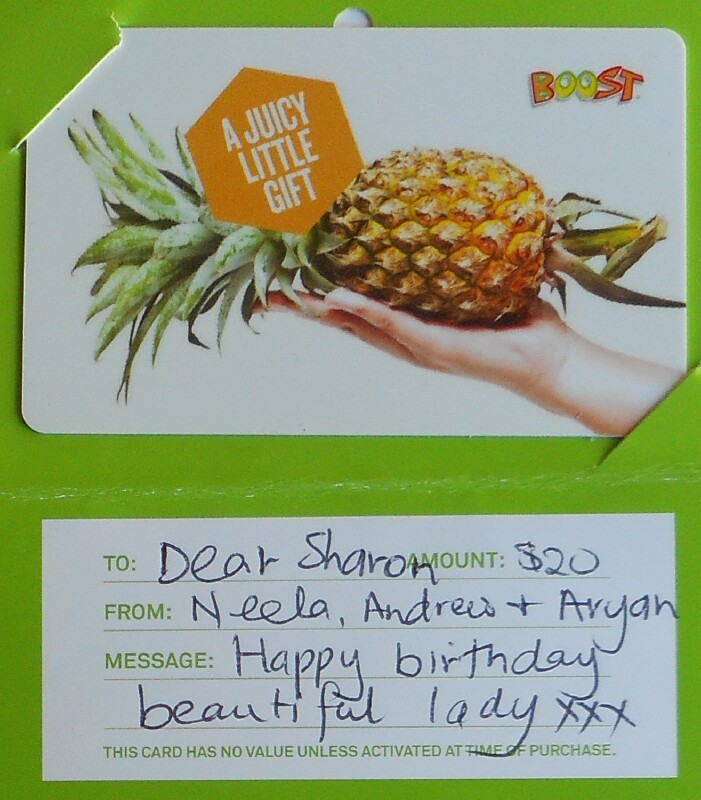 BOOST
A JUICY
LITTLE
GIFT
TO: Dear Sharon AMOUNT: $20
FROM: Neela, Andrew + Aryan
MESSAGE: Happy birthday
beautiful lady xxx
THIS CARD HAS NO VALUE UNLESS ACTIVATED AT TIME OF PURCHASE.